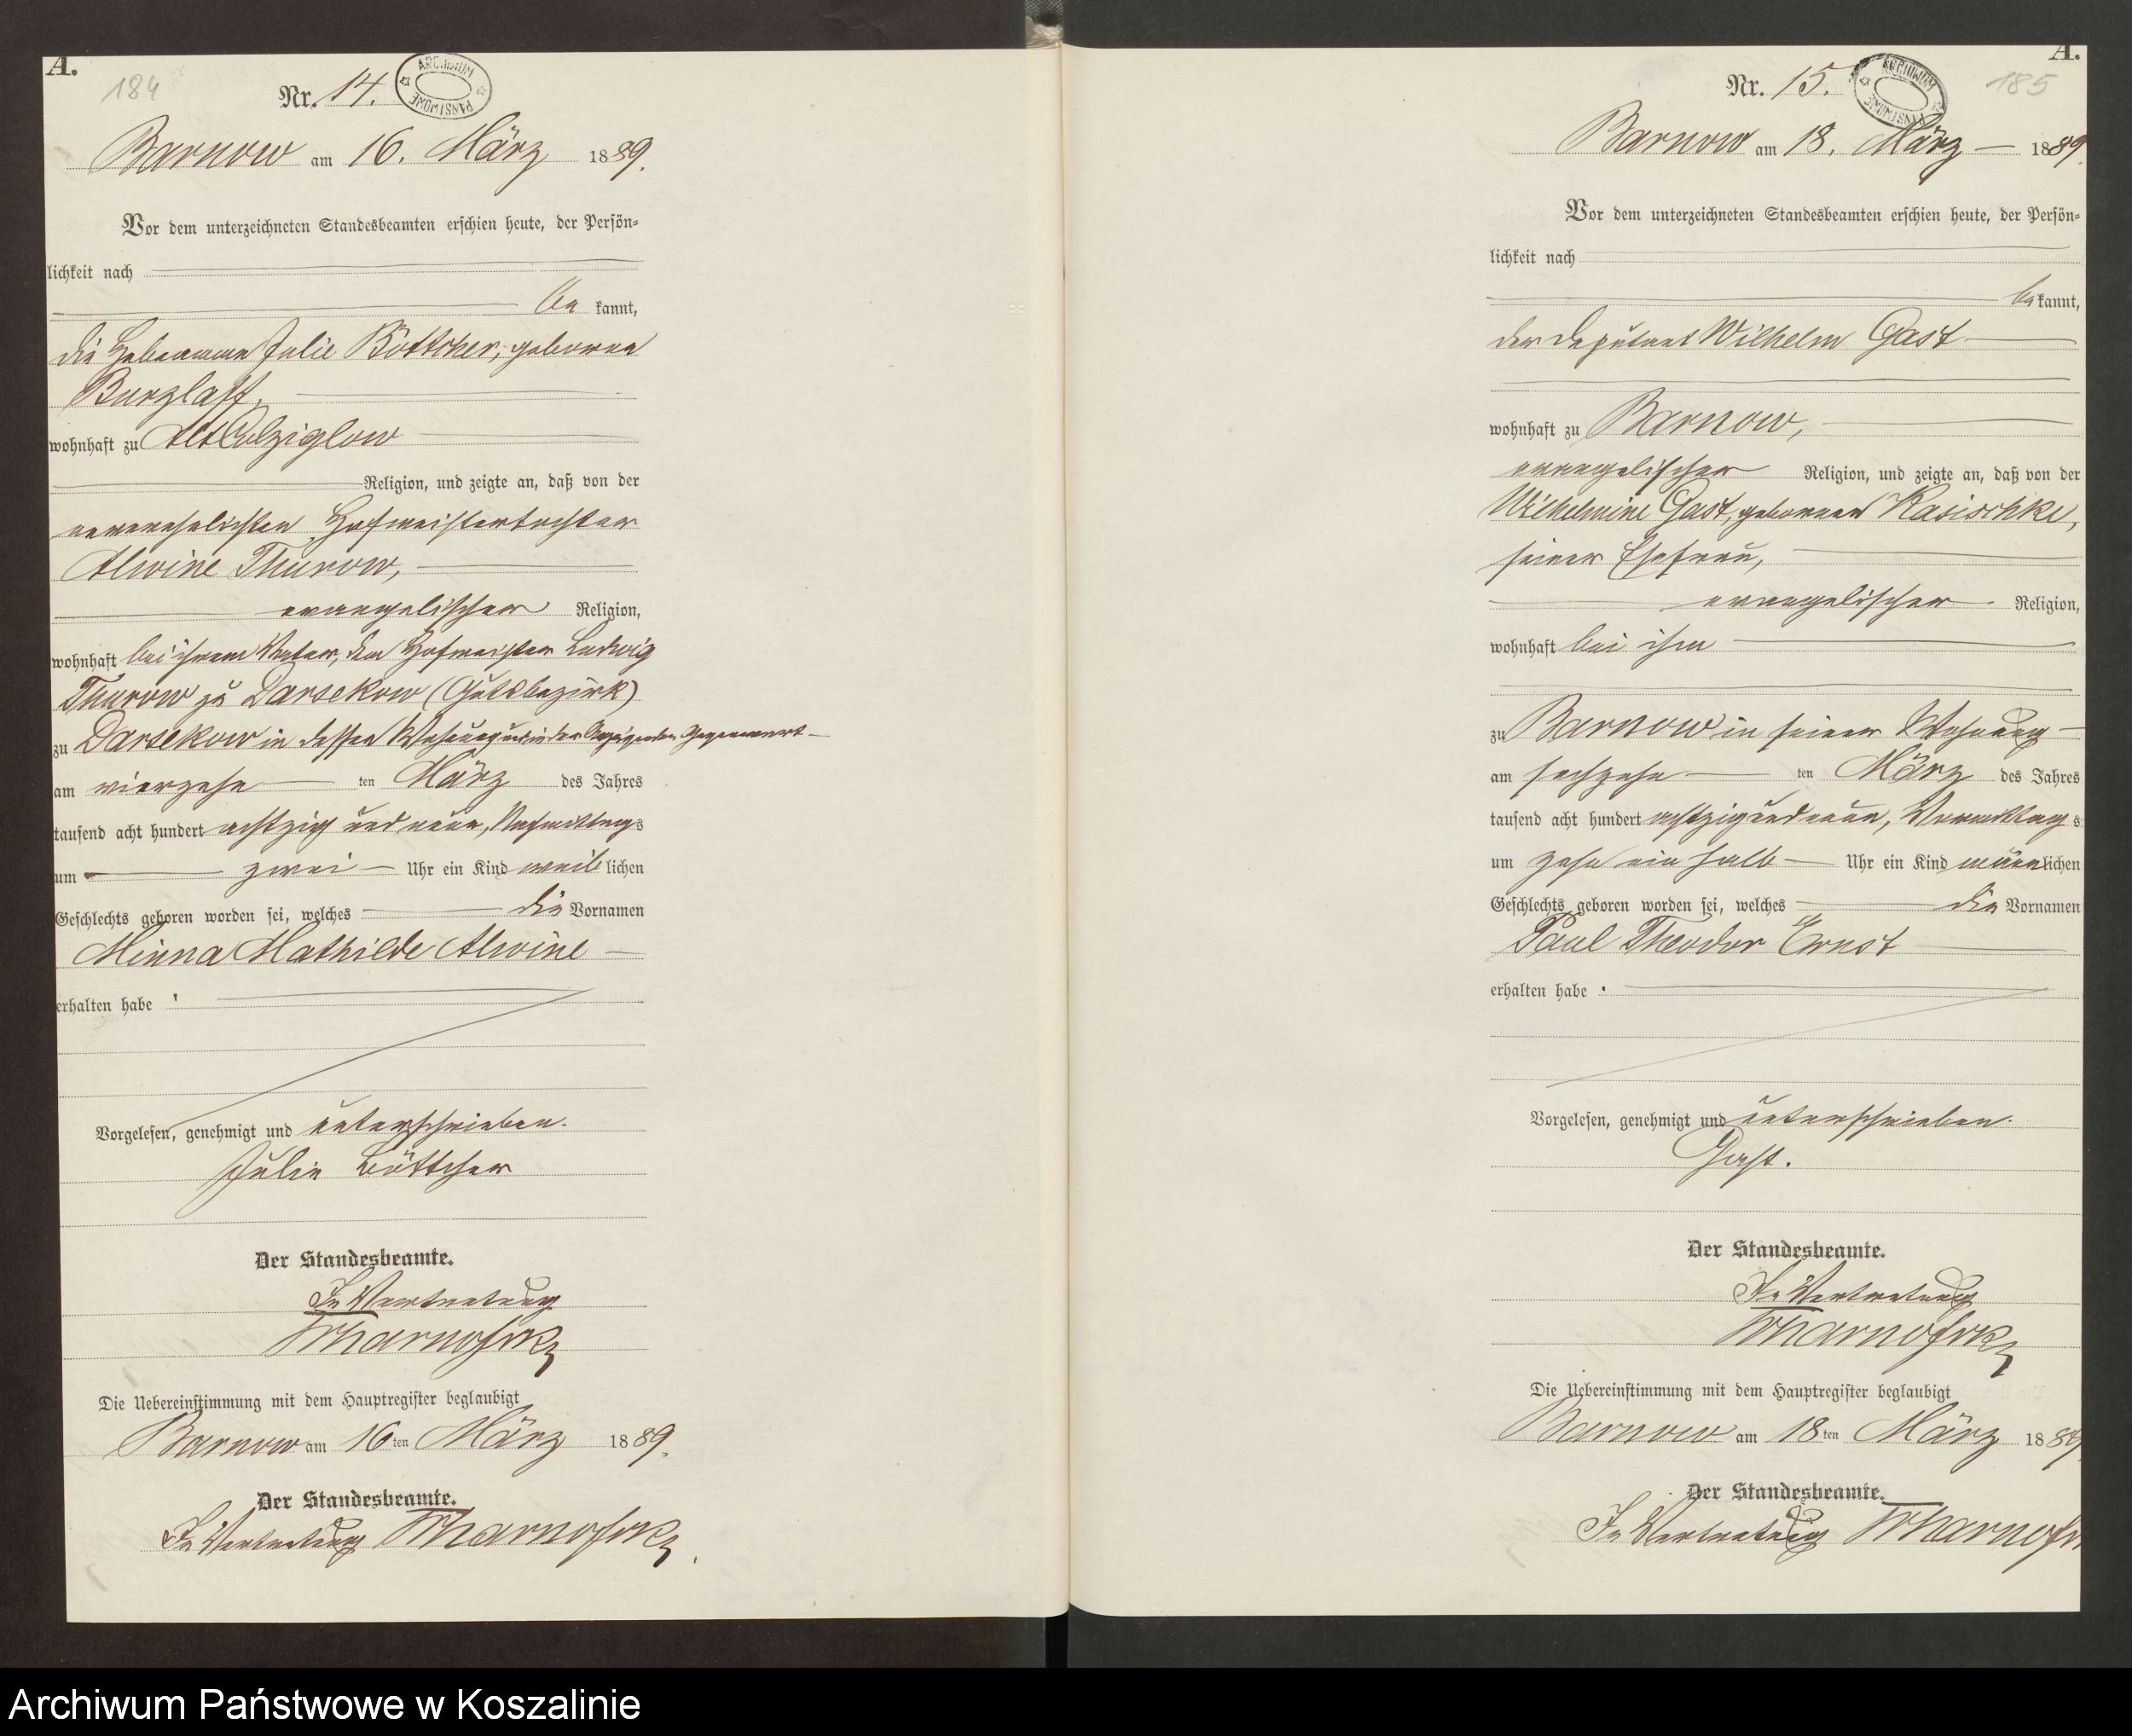 A.
184
Nr. 14.
ARCHIWUM PAŃSTWOWE
Barnow am 16. März 1889.
Vor dem unterzeichneten Standesbeamten erschien heute, der Persön-
lichkeit nach
be kannt,
die Hebeamme Julie Böttcher, geborene
Burzlaff,
wohnhaft zu Alt Colziglow
Religion, und zeigte an, daß von der
unverehelichten Hofmeistertochter
Alwine Thurow,
evangelischer Religion,
wohnhaft bei ihrem Vater, dem Hofmeister Ludwig
Thurow zu Darsekow (Gutsbezirk)
zu Darsekow in dessen Wohnung und in der Anzeigenden Gegenwart
am vierzehn ten März des Jahres
tausend acht hundert achtzig und neun, Nachmittags
um zwei Uhr ein Kind weib lichen
Geschlechts geboren worden sei, welches die Vornamen
Minna Mathilde Alwine
erhalten habe.
Vorgelesen, genehmigt und unterschrieben.
Julie Böttcher
Der Standesbeamte.
In Vertretung
Die Uebereinstimmung mit dem Hauptregister beglaubigt
Barnow am 16ten März 1889.
Der Standesbeamte.
In Vertretung
A.
185
Nr. 15.
ARCHIWUM PAŃSTWOWE
Barnow am 18. März 1889.
Vor dem unterzeichneten Standesbeamten erschien heute, der Persön-
lichkeit nach
be kannt,
der Deputant Wilhelm Gast
wohnhaft zu Barnow,
evangelischer Religion, und zeigte an, daß von der
Wilhelmine Gast, geborenen Kasischke,
seiner Ehefrau,
evangelischer Religion,
wohnhaft bei ihm
zu Barnow in seiner Wohnung
am sechzehn ten März des Jahres
tausend acht hundert achtzig und neun, Vormittags
um zehn ein halb Uhr ein Kind männlichen
Geschlechts geboren worden sei, welches die Vornamen
Paul Theodor Ernst
erhalten habe.
Vorgelesen, genehmigt und unterschrieben.
Gast.
Der Standesbeamte.
In Vertretung
Die Uebereinstimmung mit dem Hauptregister beglaubigt
Barnow am 18ten März 1889.
Der Standesbeamte.
In Vertretung
Archiwum Państwowe w Koszalinie